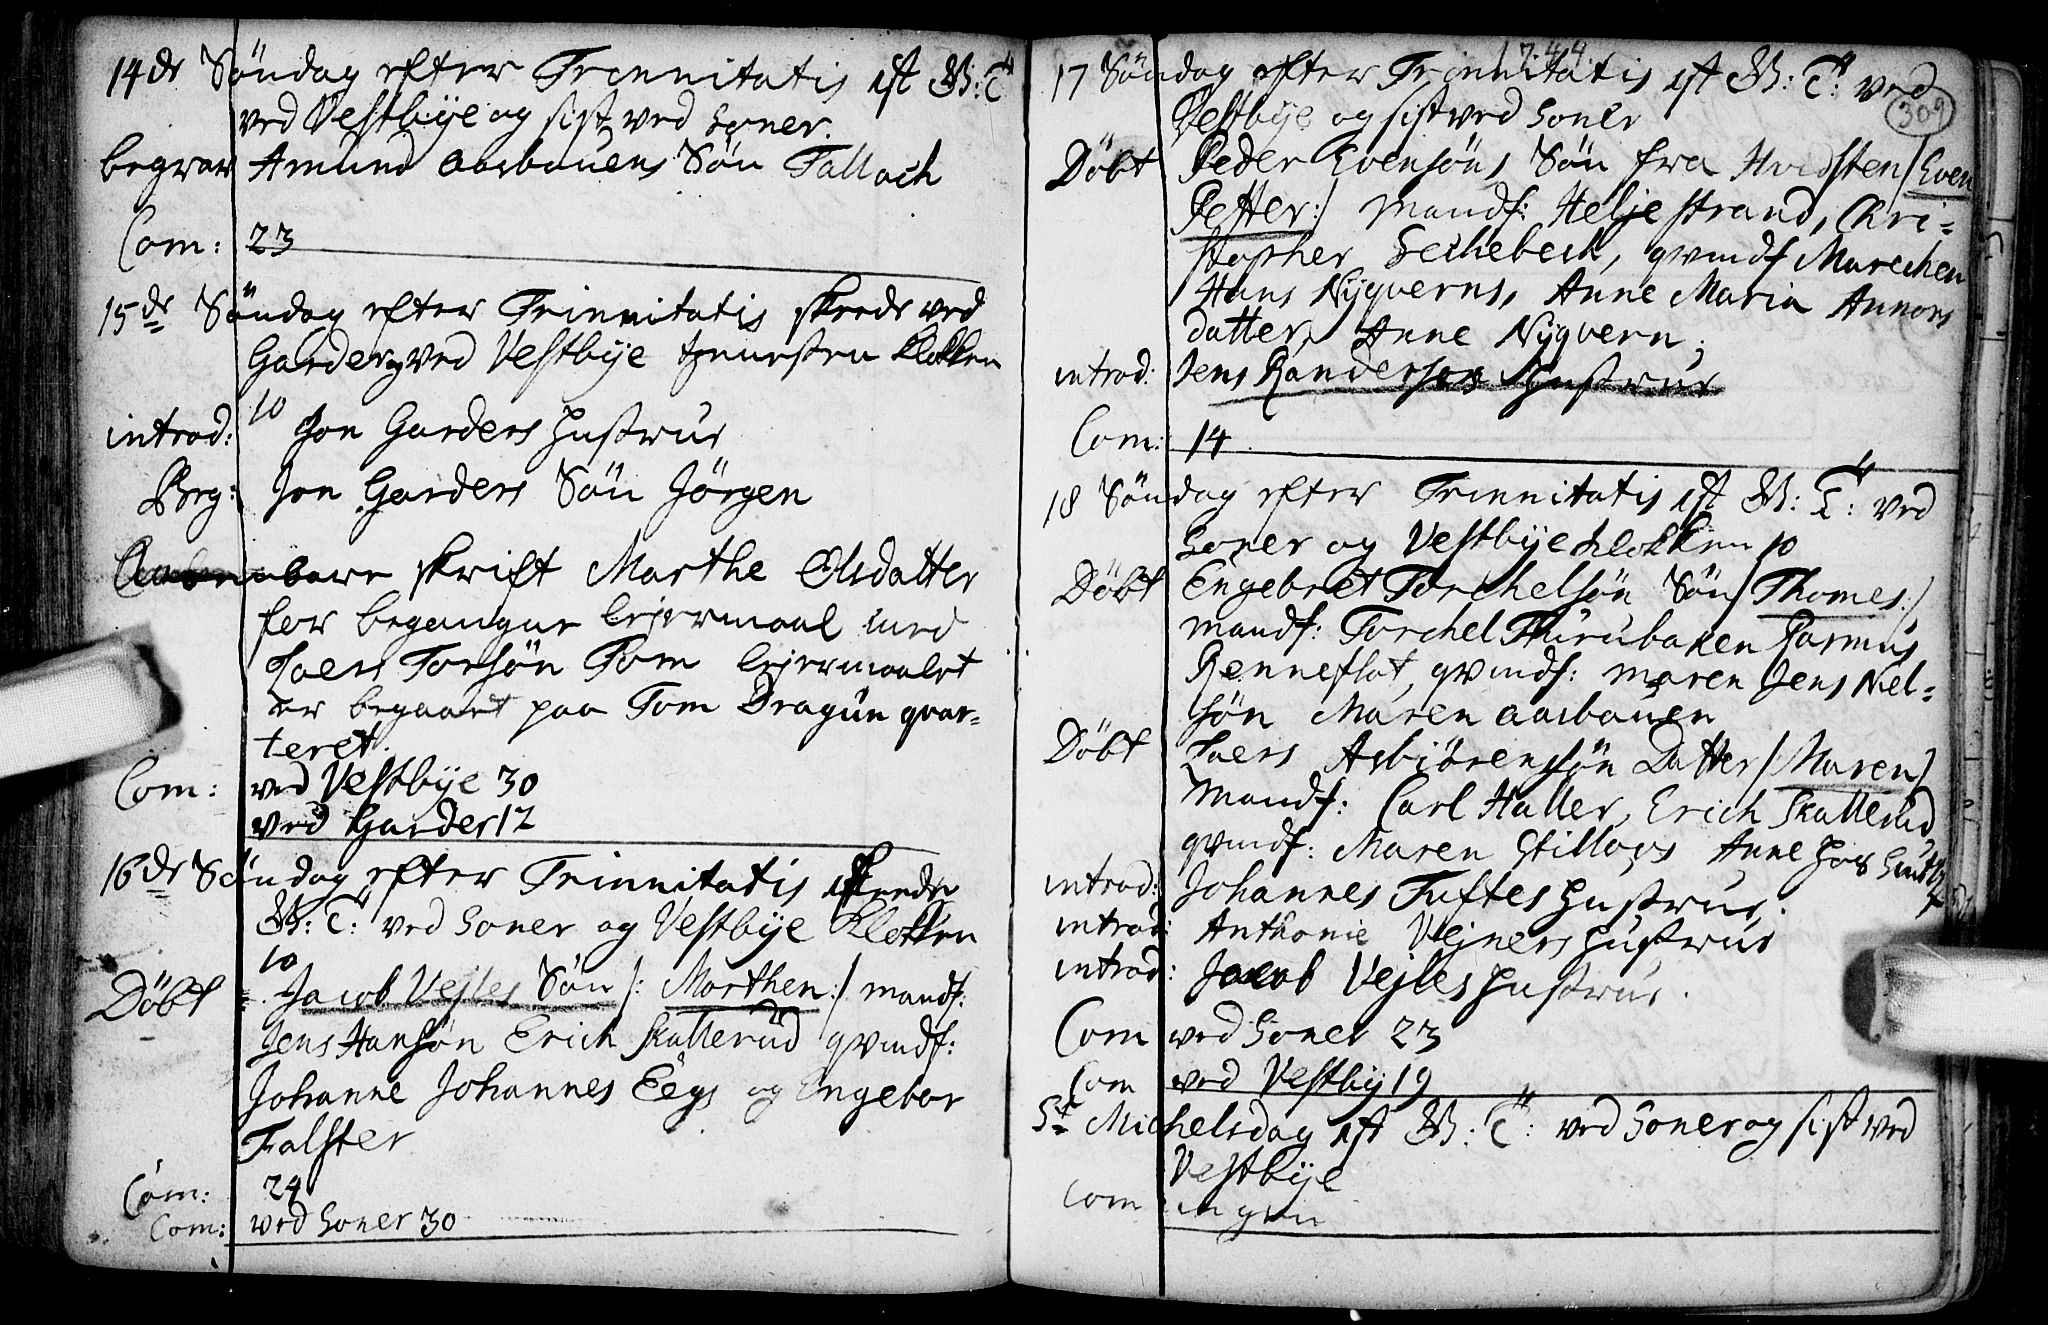 14de Söndag efter Trinnitatis est G: T:
ved Vestbÿe og sist ved Soner.
begrav Amund Aasbauens Søn Tallach
Com: 23
15de Söndag efter Trinnitatis skeede ved
Garder og ved Vestbÿe tjenesten Klokken
10
introd: Jon Garders Hustrue
Beg: Jon Garders Sön Jörgen
Aabenbare skrift Marthe Olsdatter
for begangne lejermaal med
Laers Torsön Tom lejermaalet
er begaaet paa Tom Dragün qvar-
teret.
Com: ved Vestbÿe 30
ved Garder 12
16de Söndag efter Trinnitatis skeede
G: T: ved Soner og Vestbÿe Klokken
10
Döbt Jacob Vejles Sön /: Morthen :/ mandf:
Jens Hansön Erich Skallerud qvindf:
Johanne Johannes Eegs og Engebor
Falster
Com: 24
Com: ved Soner 30
1744
309
17 Söndag efter Trinnitatis est G: T: ved
Vestbÿe og sist ved Soner
Döbt Peder Evensöns Sön fra Hvidsten /: Even
Petter :/ mandf: Helje strand, Chri-
stopher Sechebech, qvindf Marechen
Hans Nÿqverns, Anne Maria Annors
datter, Anne Nÿqvern;
introd: Jens Randersøns Hustrue
Com: 14
18 Söndag efter Trinnitatis est G: T: ved
Soner og Vestbÿe klokken 10
Döbt Engebret Torchelsön Sön /: Thomes :/
mandf: Torchel Thurubaken Rasmus
Renneflot, qvindf: maren Jens Niel-
sön Maren aasbauen
Döbt Laers Asbiörensön Datter /: Maren :/
Mandf: Carl Haller, Erich Skallerud
qvindf: Maren Anne
introd: Johannes Tuftes Hustrue.
introd: Anthonie Vejners Hustrue
introd: Jacob Vejles Hustrue.
Com ved Soner 23
Com ved Vestby 19
St Michelsdag est G: T: ved Soner og sist ved
Vestbÿe
Com ingen